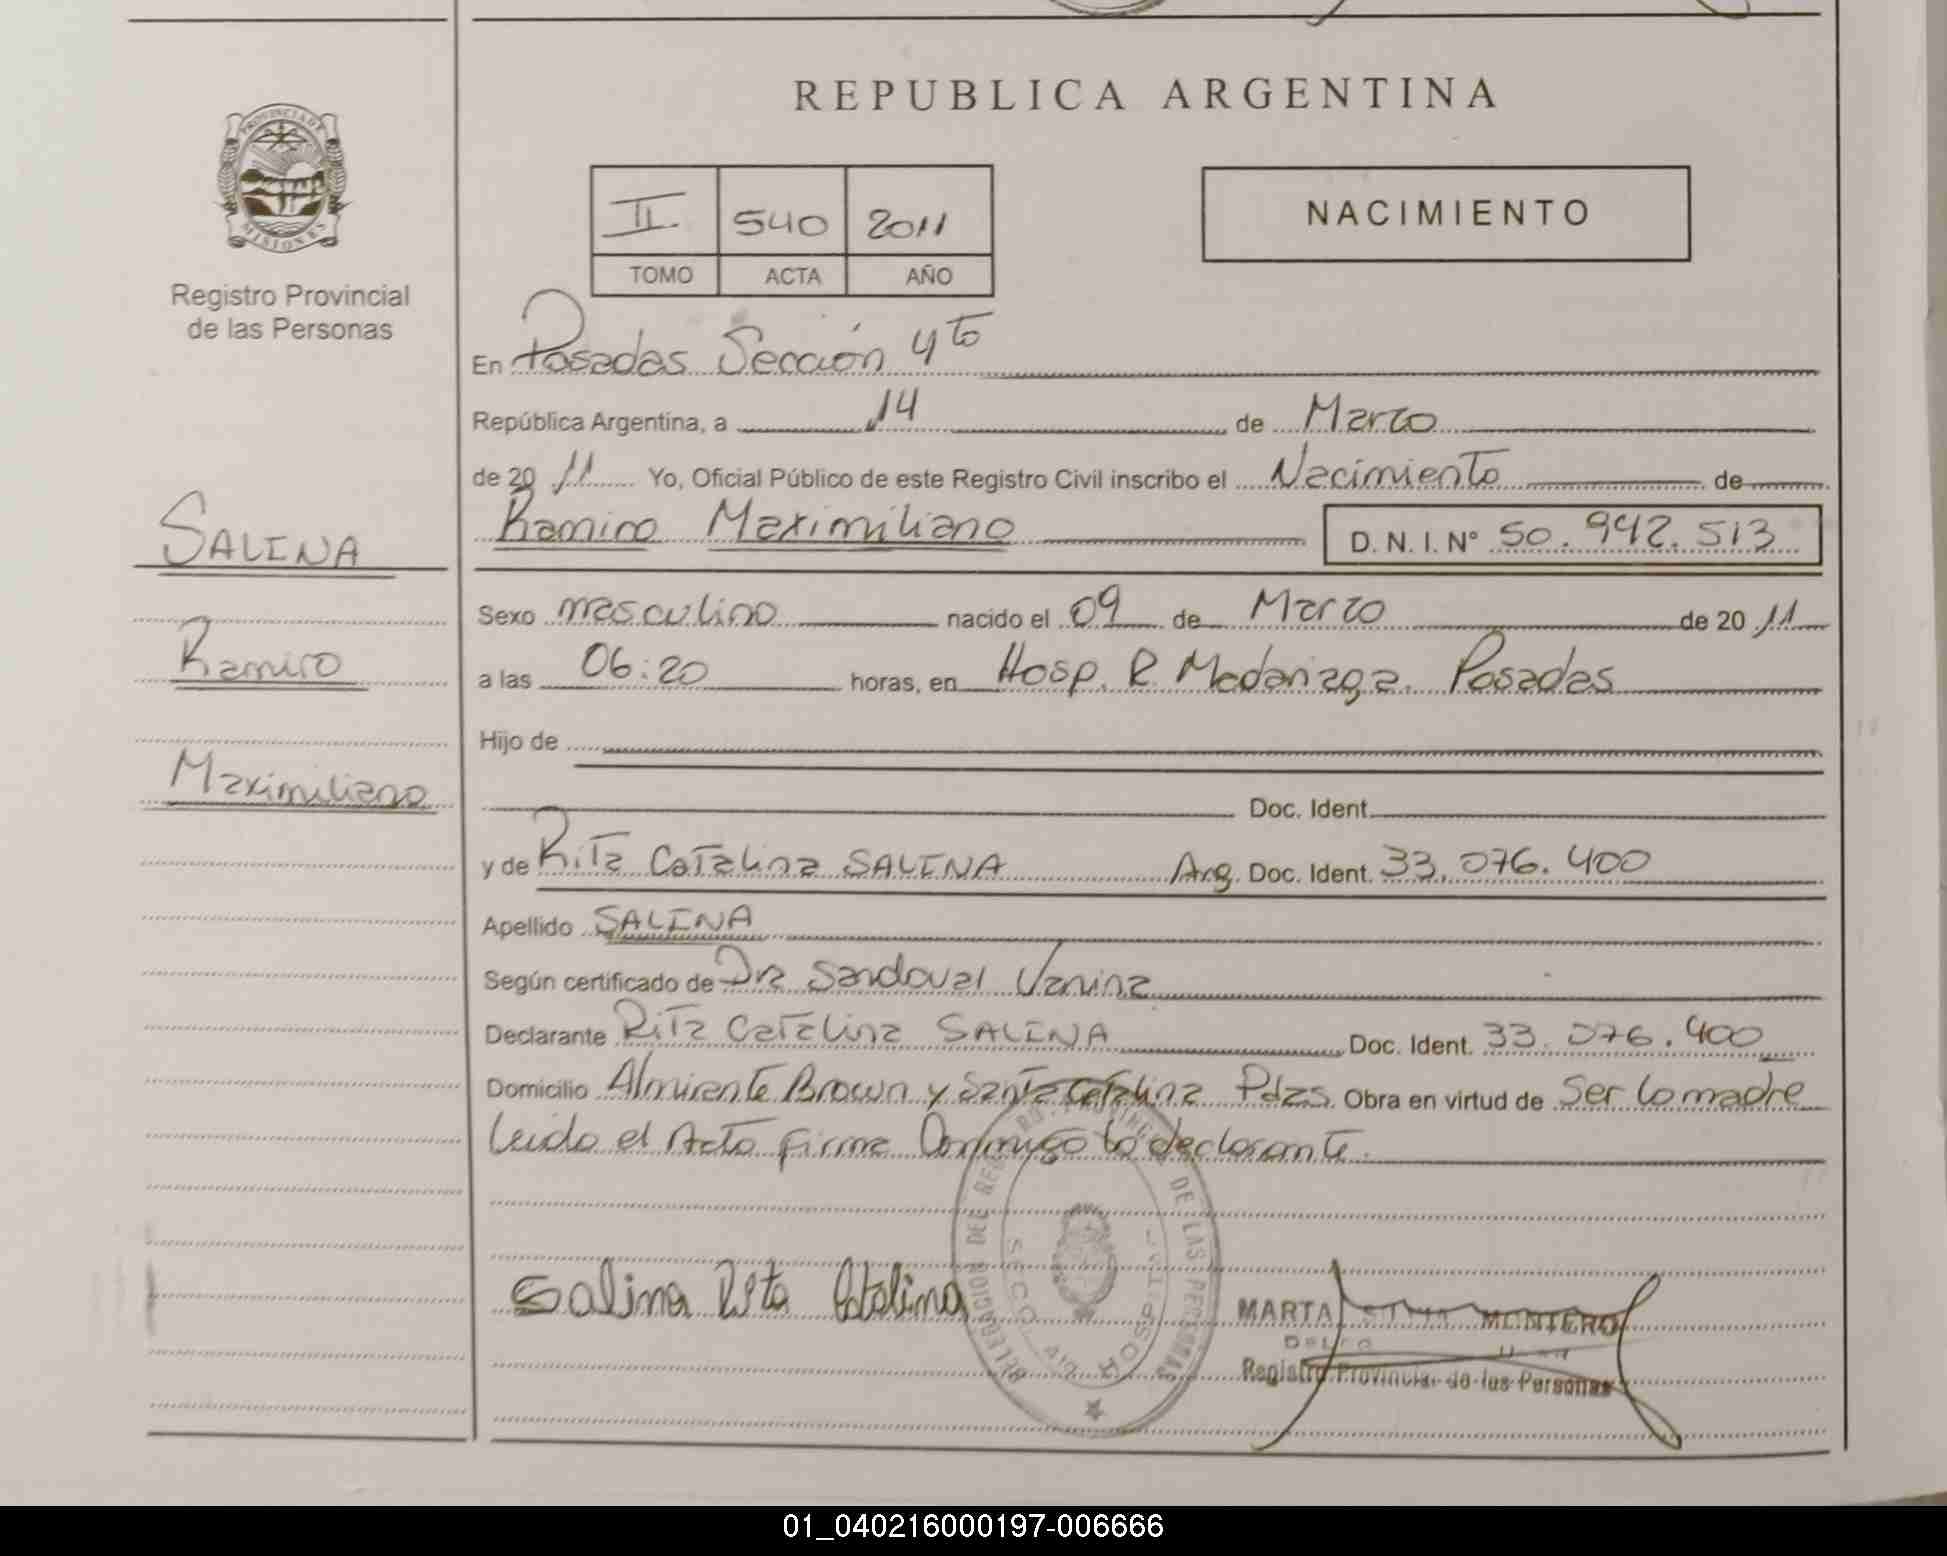 REPUBLICA ARGENTINA
PROVINCIA DE MISIONES
Registro Provincial
de las Personas
II 540 2011
TOMO ACTA AÑO
NACIMIENTO
En Posadas Sección 4to
República Argentina, a 14 de Marzo
de 20 11 Yo, Oficial Público de este Registro Civil inscribo el Nacimiento de
Ramiro Maximiliano D. N. I. N° 50.942.513
SALINA
Ramiro
Maximiliano
Sexo masculino nacido el 09 de Marzo de 20 11
a las 06:20 horas, en Hosp. R. Madariaga. Posadas
Hijo de
Doc. Ident.
y de Rita Catalina SALINA Arg. Doc. Ident. 33.076.400
Apellido SALINA
Según certificado de Dra Sandoval Vanina
Declarante Rita Catalina SALINA Doc. Ident. 33.076.400
Domicilio Almirante Brown y Santa Catalina Pdas. Obra en virtud de Ser la madre
leido el Acta firma Conmigo la declarante.
DELEGACION DEL REGISTRO PROVINCIAL DE LAS PERSONAS
HOSPITAL
Salina Rita Catalina
MARTA SILVIA MONTERO
Registro Provincial de las Personas
01_040216000197-006666